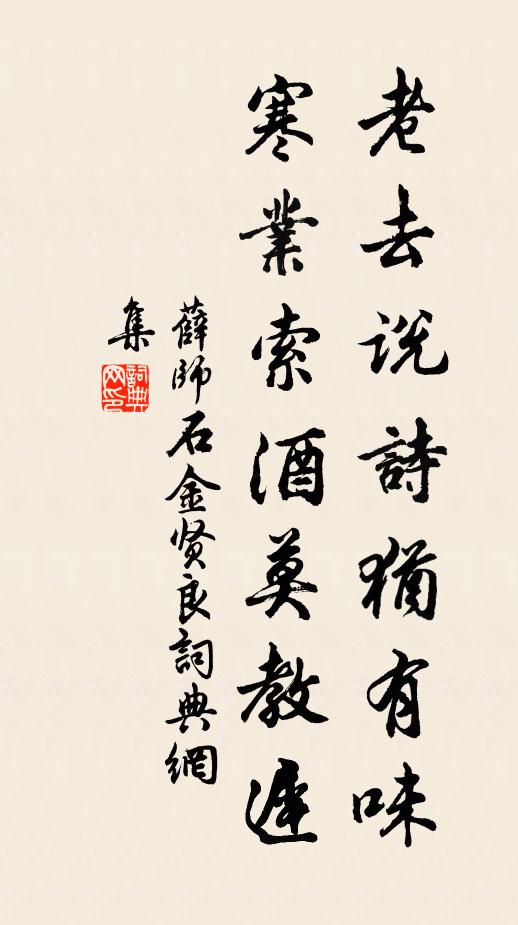 老去说詩猶有味
寒業索酒莫教遲
薛師石金贤良詞典網
集
詞典网印